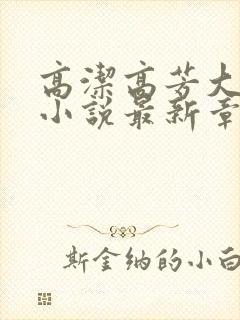 高潔高芳大
小說最新章
斯金纳的小白